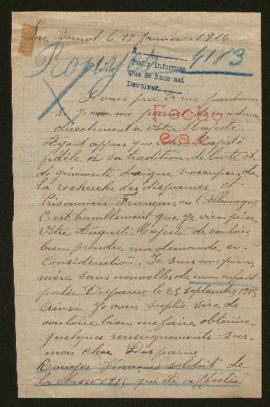 Loc Bernot le 17 Janvier 1916
R.
4183
Pedir informes
que se hace así
Devolver.
Fecho
Je vous prie de me pardonner
si je me permets de
directement à Votre Majesté
Ayant appris que Votre Majesté
fidèle à sa tradition de bonté et
de générosité daigne s'occuper de
la recherche des disparus et
Prisonniers Français en Allemagne
C'est humblement que je viens prier
Votre Auguste Majesté de vouloir
bien prendre ma demande en
Considération. Je suis une pauvre
mère sans nouvelles de mon enfant
porté Disparu le 25 Septembre 1915
Ainsi Je vous suplie Sire de
vouloir bien me faire obtenir
quelques renseignements sur
mon cher Disparu
François soldat de
la classe 1915